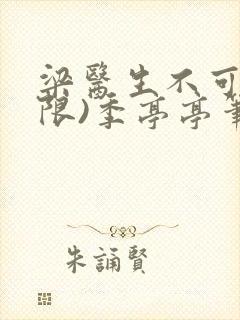 梁醫生不可
限)季亭亭筆
朱誦賢